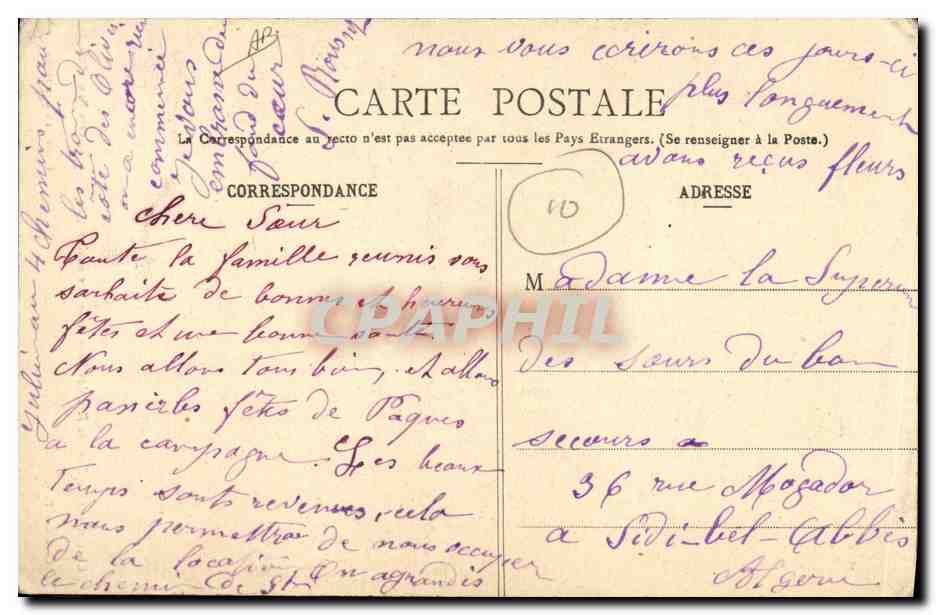 nous vous ecrirons ces jours-ci
plus longuement
avons reçus fleurs
CARTE POSTALE
La Correspondance au recto n'est pas acceptée par tous les Pays Etrangers. (Se renseigner à la Poste.)
CORRESPONDANCE
chere Sœur
Toute la famille reunis vous
souhaite de bonnes et heureuses
fêtes et une bonne santé
Nous allons tous bien, et allons
les fêtes de Paques
a la campagne. Les beaux
temps sonts revenues, cela
nous permettra de nous occuper
de la location On agrandis
le chemin de
au 4 chemins,
les
coté des
on a encore rien
commencé
Je vous
embrasse du
fond du
cœur
L.
AB
10
ADRESSE
Madame la Superieure
des sœurs du bon
secours a
36 rue Mogador
a Sidi-bel-Abbis
Algerie
CPAPHIL